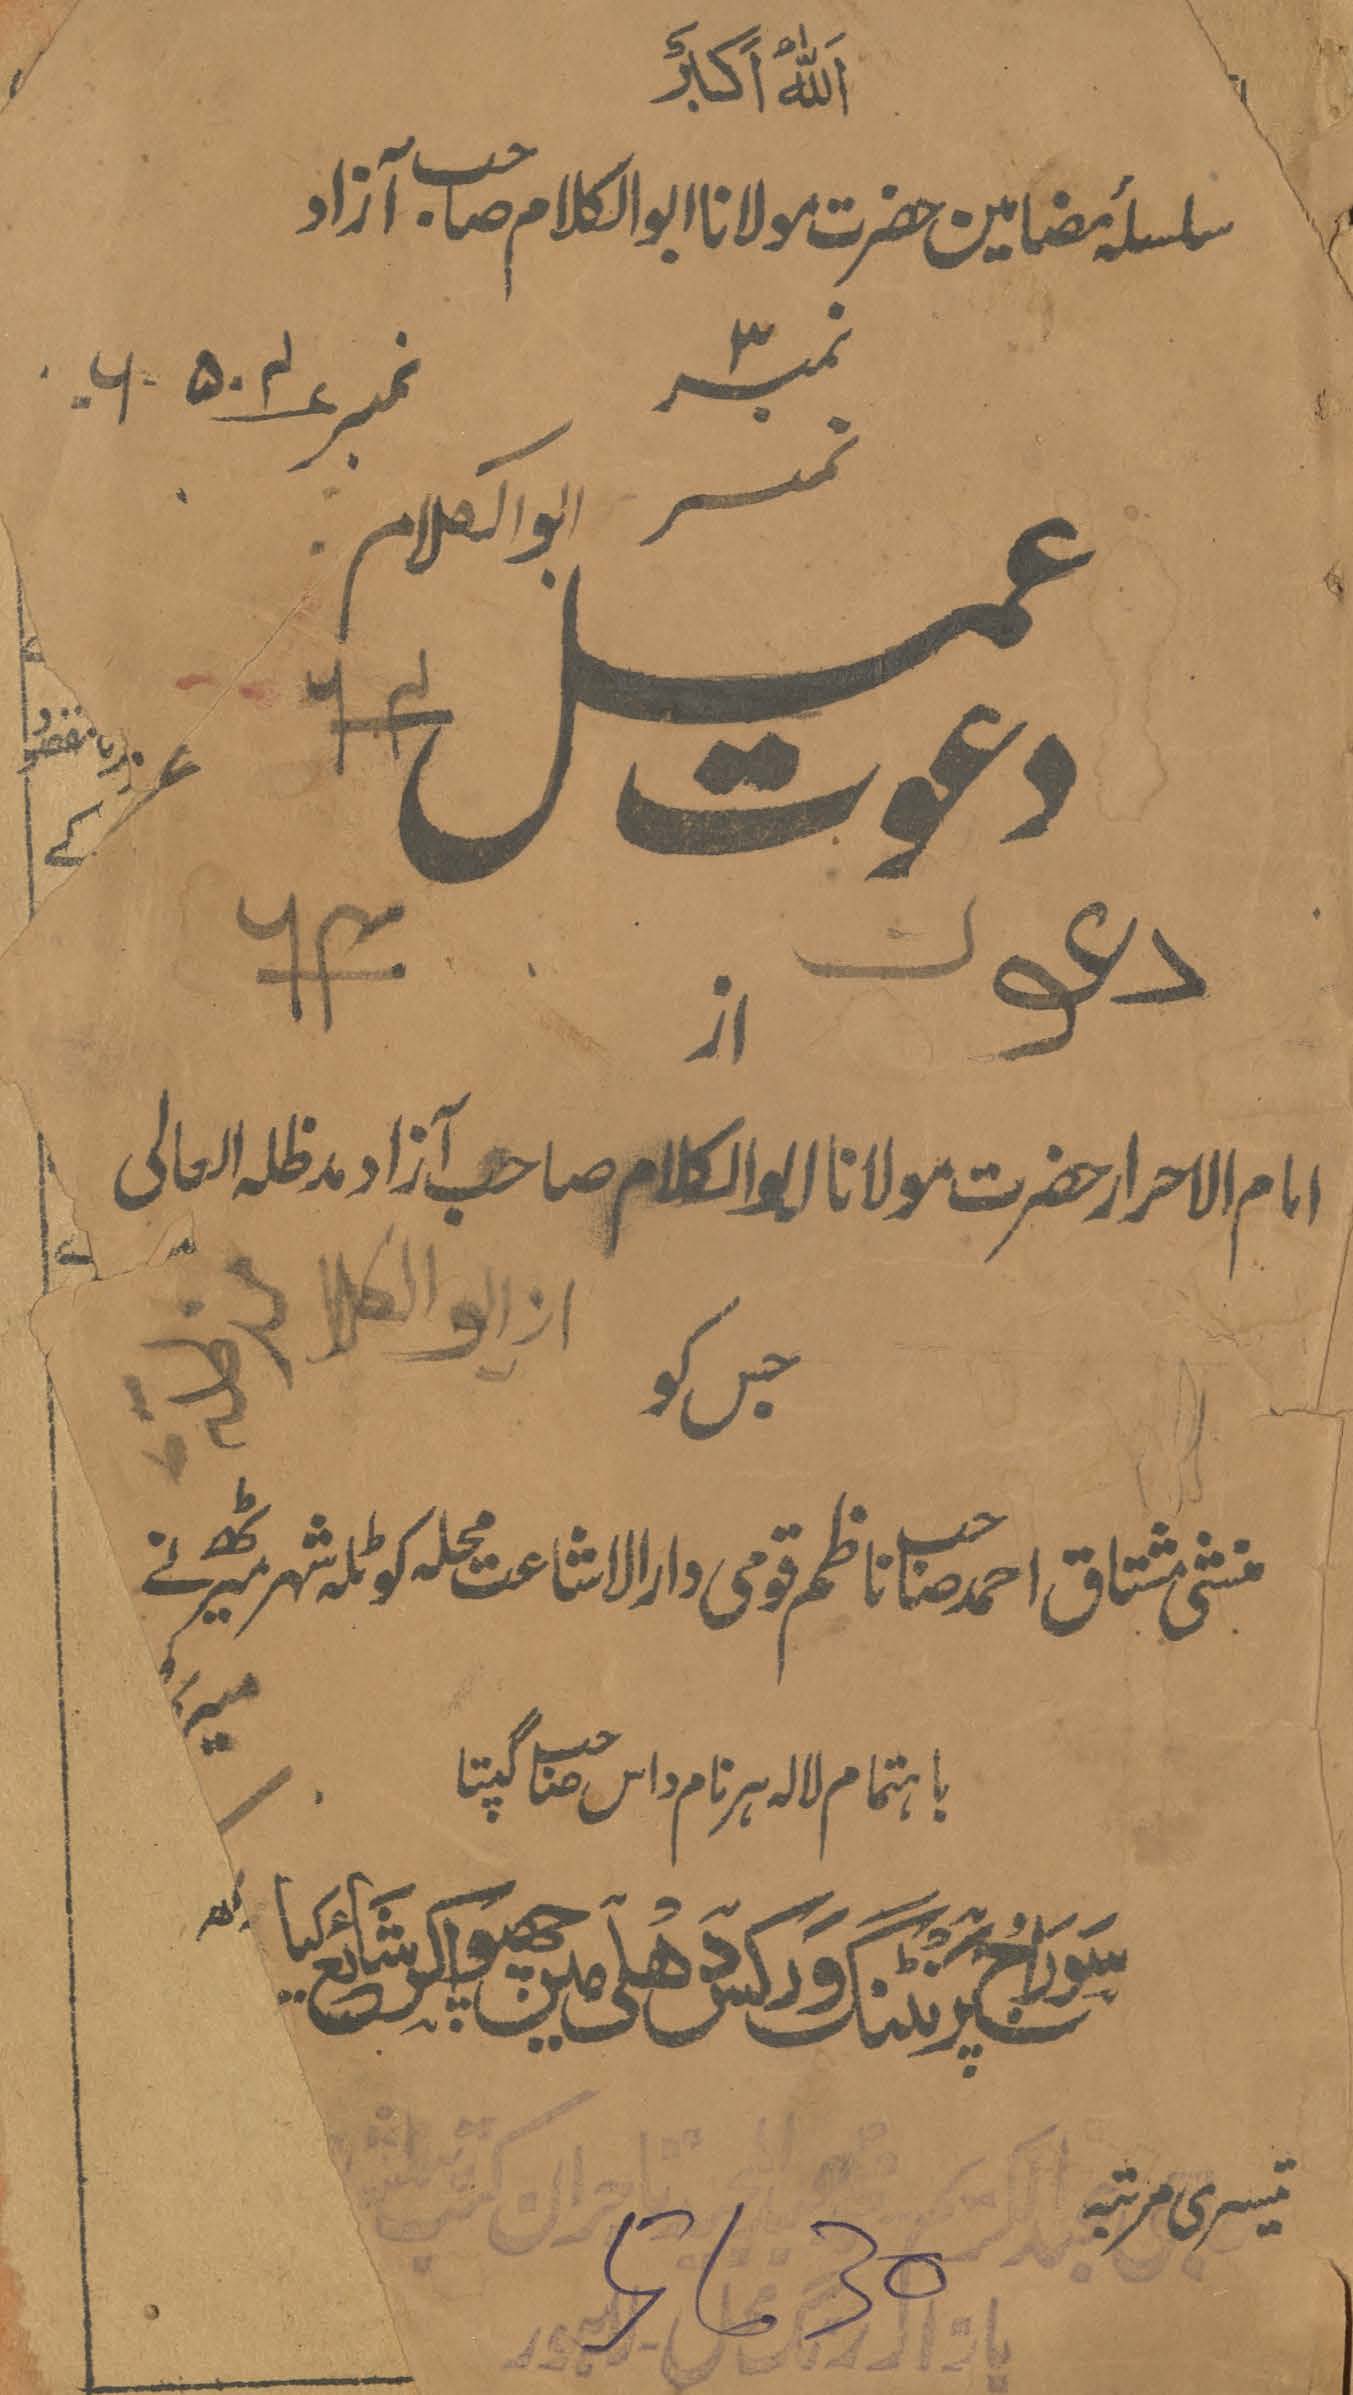 اَللّٰهُ اَکبَرْ
سلسلۂ مضامین حضرت مولانا ابو الکلام صاحب آزاد
نمبر ۳
نمبر
نمبر
ابو الکلام
دعوت عمل
دعوت
از
امام الاحرار حضرت مولانا ابو الکلام صاحب آزاد مدظلہ العالی
از ابو الکلام
جس کو
منشی مشتاق احمد صاحب ناظم قومی دار الاشاعت محلہ کوٹلہ شہر میرٹھ نے
باہتمام لالہ ہرنام داس صاحب گپتا
سَوَراج پرنٹنگ وَرکس دہلی میں چھپوا کر شائع کیا
تیسری مرتبہ
تاجران کتب
بازار
لاہور